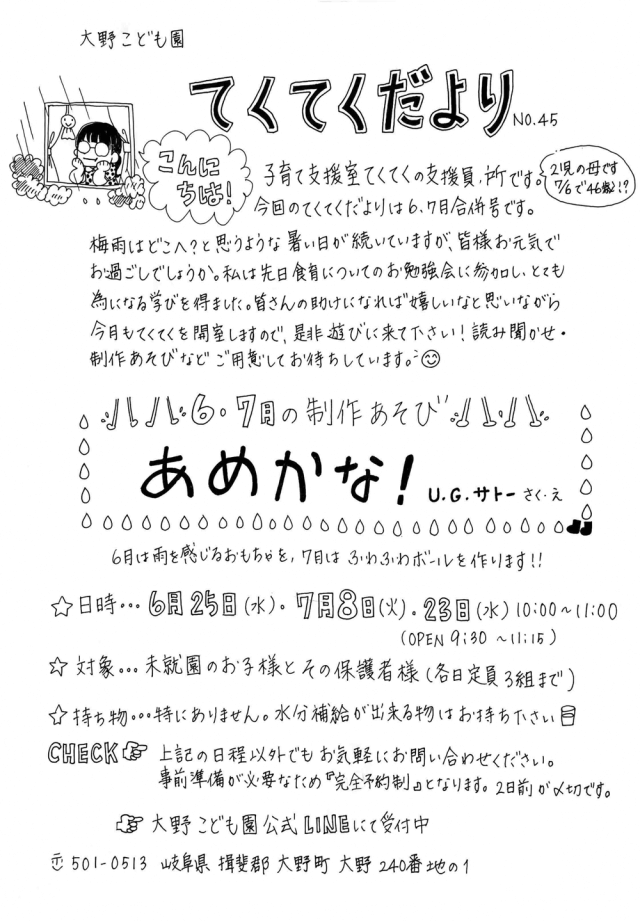 大野こども園
てくてくだより NO.45
こんに
ちは!
子育て支援室てくてくの支援員、所です。
2児の母です
7/6で46歳!?
今回のてくてくだよりは6、7月合併号です。
梅雨はどこへ?と思うような暑い日が続いていますが、皆様お元気で
お過ごしでしょうか。私は先日食育についてのお勉強会に参加し、とても
為になる学びを得ました。皆さんの助けになれば嬉しいなと思いながら
今月もてくてくを開室しますので、是非遊びに来て下さい!読み聞かせ・
制作あそびなどご用意してお待ちしています。
6・7月の制作あそび
あめかな! U.G.サトー さく・え
6月は雨を感じるおもちゃを、7月はふわふわボールを作ります!!
☆日時…6月25日(水)・7月8日(火)・23日(水)10:00~11:00
(OPEN 9:30~11:15)
☆対象…未就園のお子様とその保護者様(各日定員3組まで)
☆持ち物…特にありません。水分補給が出来る物はお持ち下さい
CHECK☞ 上記の日程以外でもお気軽にお問い合わせください。
事前準備が必要なため『完全予約制』となります。2日前が〆切です。
☞ 大野こども園公式LINEにて受付中
〒501-0513 岐阜県揖斐郡大野町大野240番地の1